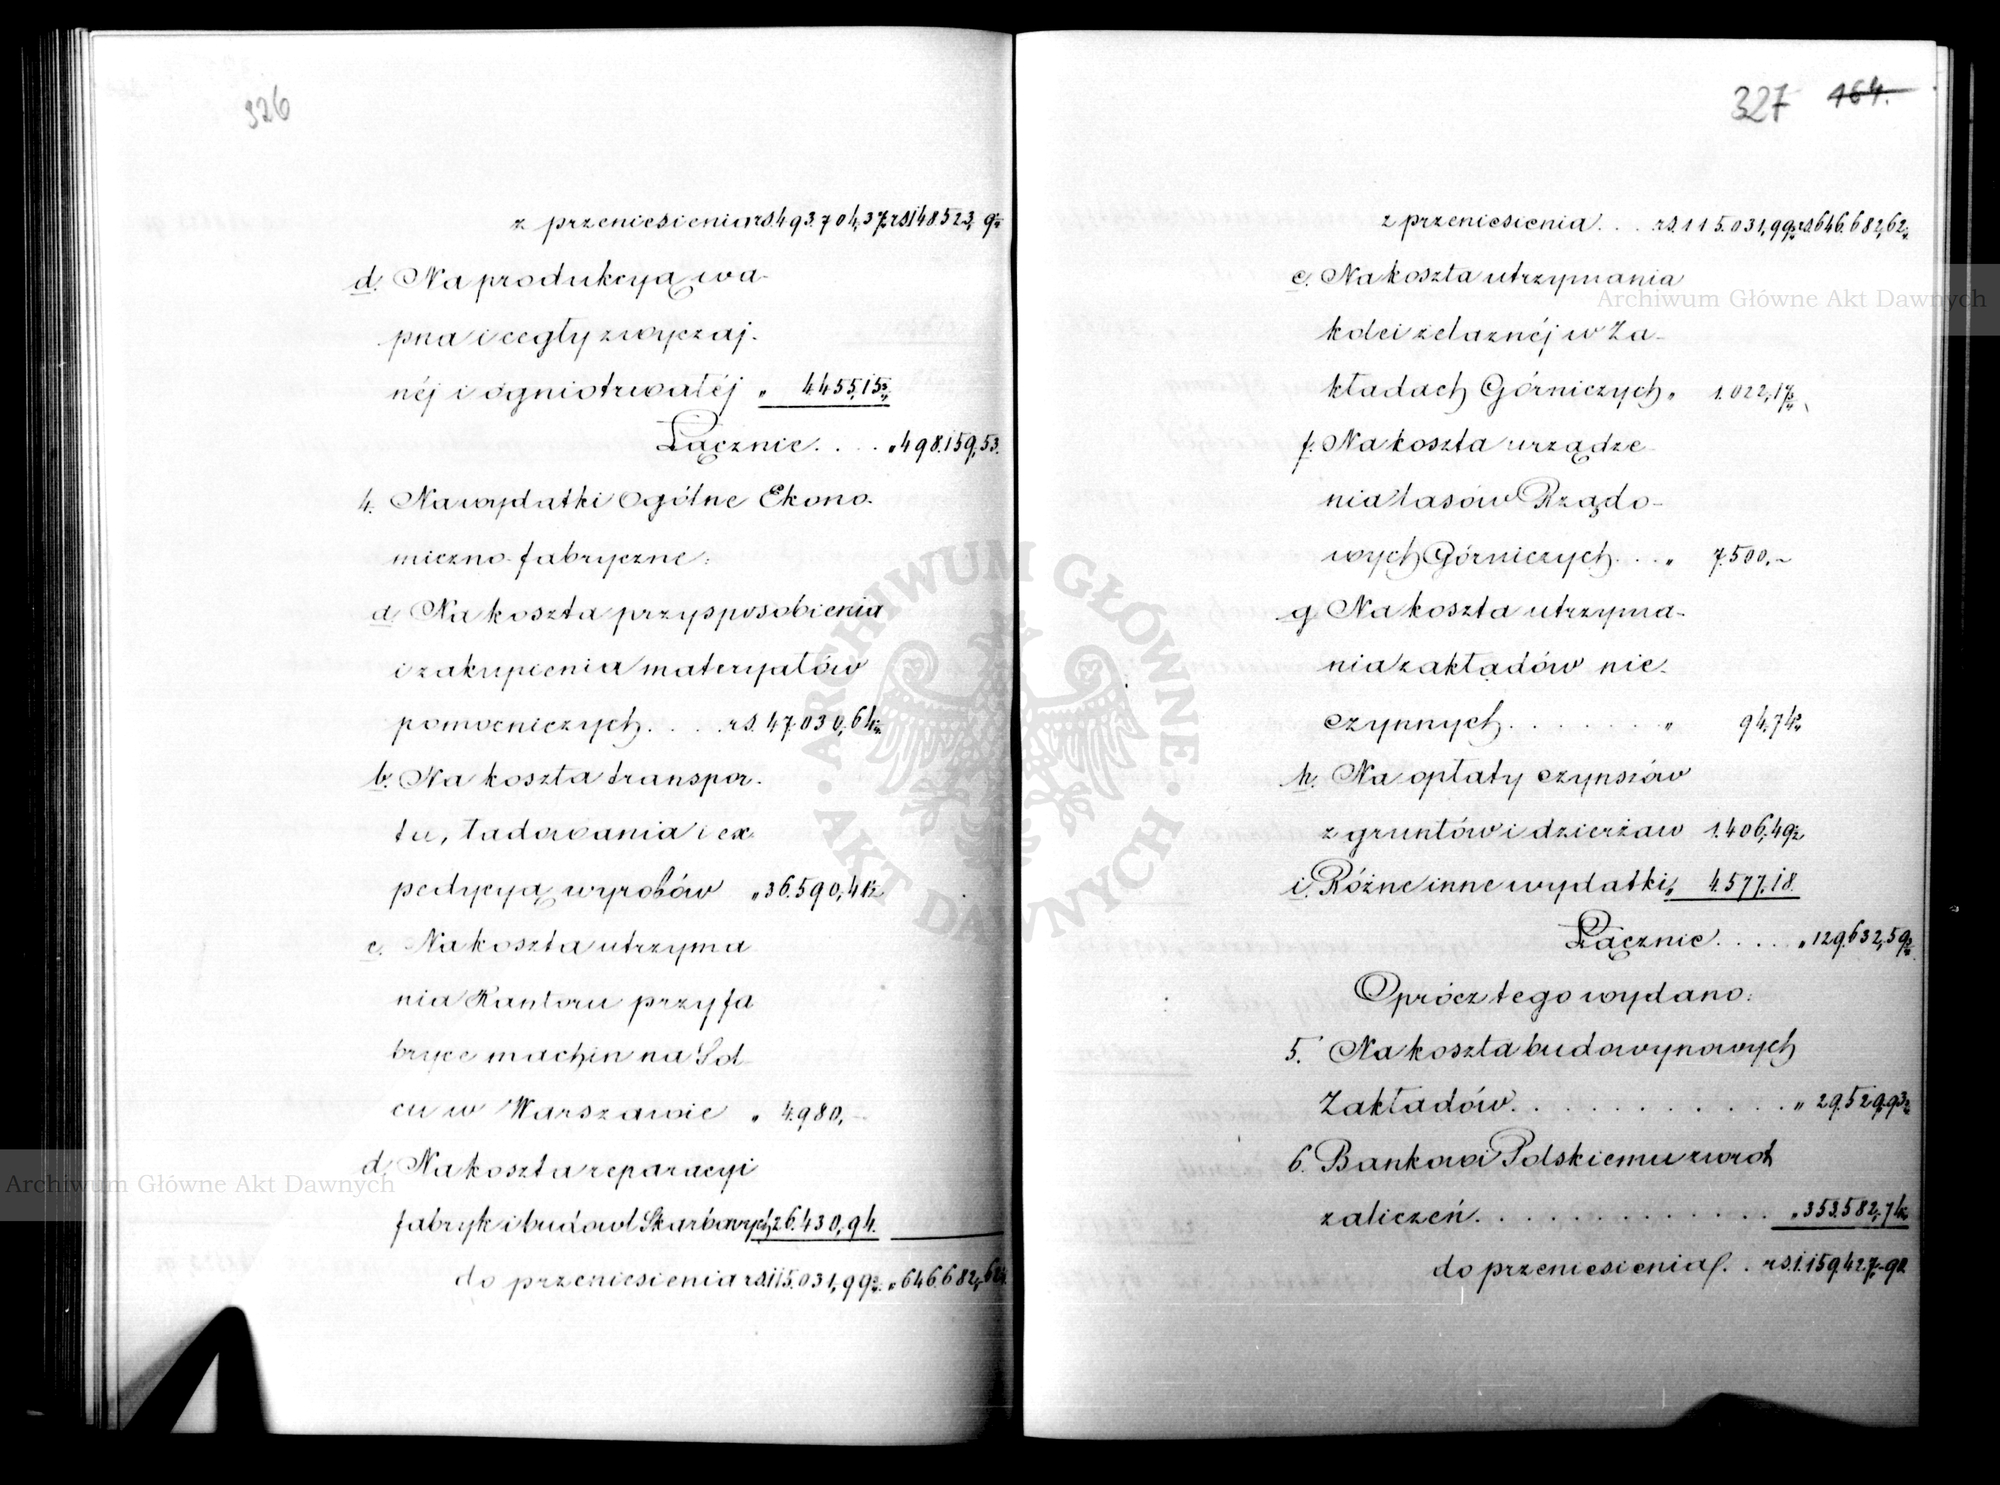 326
z przeniesienia rs. 493.704,37½ rs. 148.523, 9½
d. Na produkcyą wa-
pna i cegły zwyczaj-
néj i ogniotrwałéj „ 4.455,15½
Łącznie . . . . „ 498.159,53.
4. Na wydatki ogólne Ekono-
miczno-fabryczne:
a. Na koszta przysposobienia
i zakupienia materyałów
pomocniczych . . . rs. 47.030,64½
b. Na koszta transpor-
tu, ładowania i ex
pedycyą wyrobów „ 36.590,41½
c. Na koszta utrzyma
nia Kantoru przy fa
bryce machin na Sol-
cu w Warszawie „ 4.980,—
d. Na koszta reparacyi
fabryk i budowl Skarbowych 26.430,94.
do przeniesienia rs. 115.031,99½ „ 646.682,62½
327 164.
z przeniesienia . . . rs. 115.031,99½ rs. 646.682,62½
e. Na koszta utrzymania
kolei żelaznéj w Za-
kładach Górniczych „ 1.022,17½
f. Na koszta urządze-
nia lasów Rządo-
wych Górniczych . . . „ 7.500,—
g. Na koszta utrzyma-
nia zakładów nie-
czynnych . . . . . . . „ 94,74½
h. Na opłaty czynszów
z gruntów i dzierżaw 1.406,49½
i. Różne inne wydatki „ 4.577,18.
Łącznie . . . . . „ 129.632,59½
Oprócz tego wydano:
5. Na koszta budowy nowych
Zakładów . . . . . . . . . . . „ 29.529,93½
6. Bankowi Polskiemu zwrot
zaliczeń . . . . . . . . . . . . „ 353.582,74½
do przeniesienia . . rs. 1.159.427,90
Archiwum Główne Akt Dawnych
Archiwum Główne Akt Dawnych
ARCHIWUM GŁÓWNE · AKT DAWNYCH ·